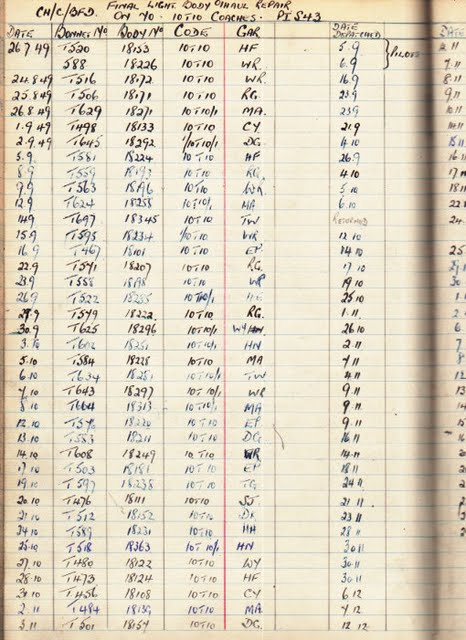 CH/C/BFD. FINAL LIGHT BODY O'HAUL REPAIR
ON YO. 10T10 COACHES. PIS43
DATE BONNET NO BODY NO CODE GAR DATE DESPATCHED DATE
26.7.49 T520 18153 10T10 HF 5.9
588 18226 10T10 WR. 6.9
24.8.49 T516 18172 10T10 WR. 16.9
25.8.49 T506 18171 10T10 RG. 23.9
26.8.49 T629 18271 10T10/1 MA. 23.9
1.9.49 T498 18133 10T10 CY 21.9
2.9.49 T645 18292 1/10T10/1 DG. 4.10
5.9. T581 18224 10T10 HF 26.9
8.9 T559 18193 10T10 RG. 4.10
9.9. T563 18196 10T10 WR. 5.10
12.9 T624 18258 10T10/1 MA 6.10
14.9 T697 18345 10T10 TW RETURNED
15.9 T595 18234 1/10T10 WR 12.10
16.9 T467 18101 10T10 EP. 14.10
22.9 T541 18207 10T10 RG. 17.10
23.9 T558 10T10 WR 19.10
26.9 T522 10T10/1 25.10
29.9 T549 18222 10T10 RG. 1.11
30.9 T625 18296 10T10/1 26.10
3.10 T602 18251 10T10/1 HN 2.11
5.10 T584 18228 10T10 MA 4.11
6.10 T634 18281 10T10/1 TW 4.11
T643 18297 10T10/1 WR 9.11
T664 18313 10T10/1 MA 9.11
12.10 18220 10T10 EP. 9.11
13.10 T553 18211 10T10 DG. 16.11
14.10 T608 18249 10T10 WR. 14.11
17.10 T503 18181 10T10 EP 18.11
19.10 T597 18238 10T10 TG 24.11
20.10 T476 18111 10T10 SJ. 21.11
21.10 T512 18152 10T10 23.11
24.10 T589 18231 10T10 HH 28.11
25.10 T518 18363 10T10/1 HN 30.11
27.10 T480 18122 10T10 WY 30.11
28.10 T473 18124 10T10 HF 30.11
31.10 T456 18108 10T10 CY 6.12
2.11 T484 18139 10T10 MA 7.12
3.11 T501 18154 10T10 DG. 12.12